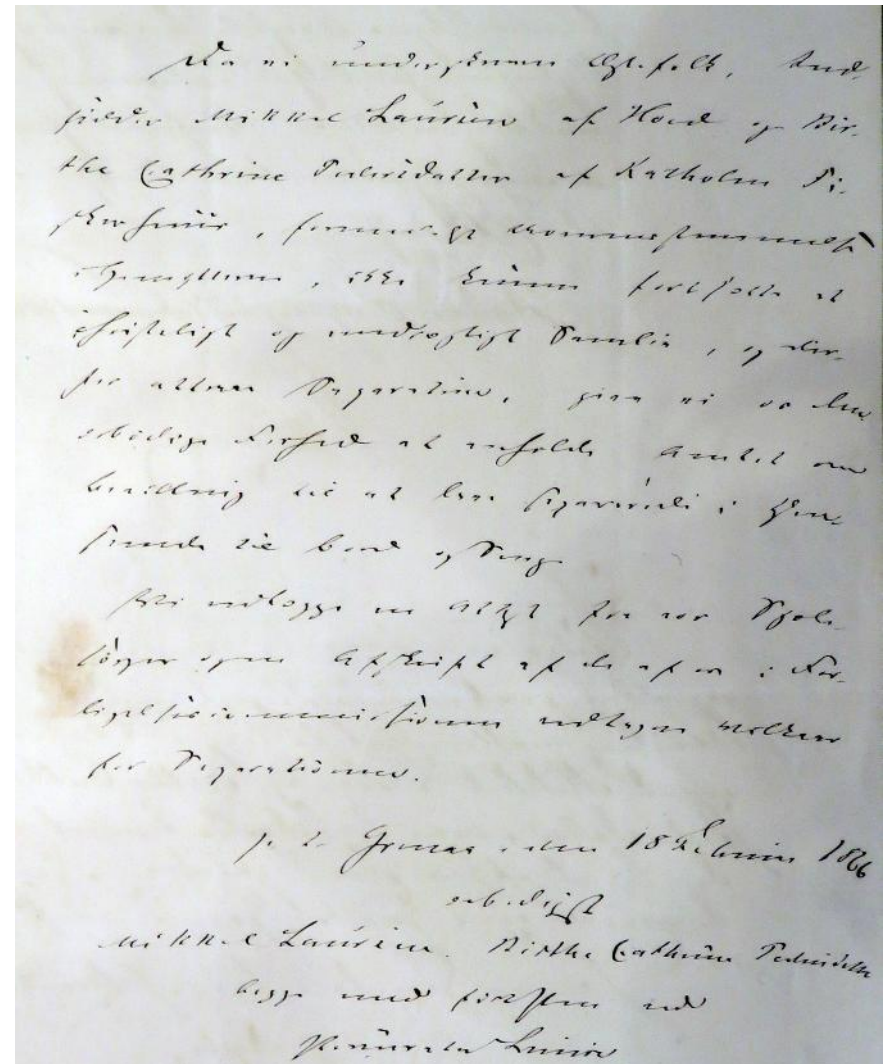 Da vi underskrevne Ægtefolk, Ind-
sidder Mikkel Laursen af Hoed og Bir-
the Cathrine Pedersdatter af Katholm Fi-
skerhuus, formedelst
, ikke kunne fortsætte et
christeligt og endrægtigt Samliv, og der-
for attraae Separation, give vi os den
ærbødige Frihed at anholde Amtet om
Bevilling til at leve separerede i Hen-
seende til Bord og Seng
Vi vedlægge en Attest fra vor Sjæle-
sørger og en Afskrift af de af os i For-
ligelsescommissionen vedtagne Vilkaar
for Separationen.
p. t. Grenaa den 18 Februar 1866
ærbødigst
Mikkel Laursen. Birthe Cathrine Pedersdatter
begge med ført Pen ved